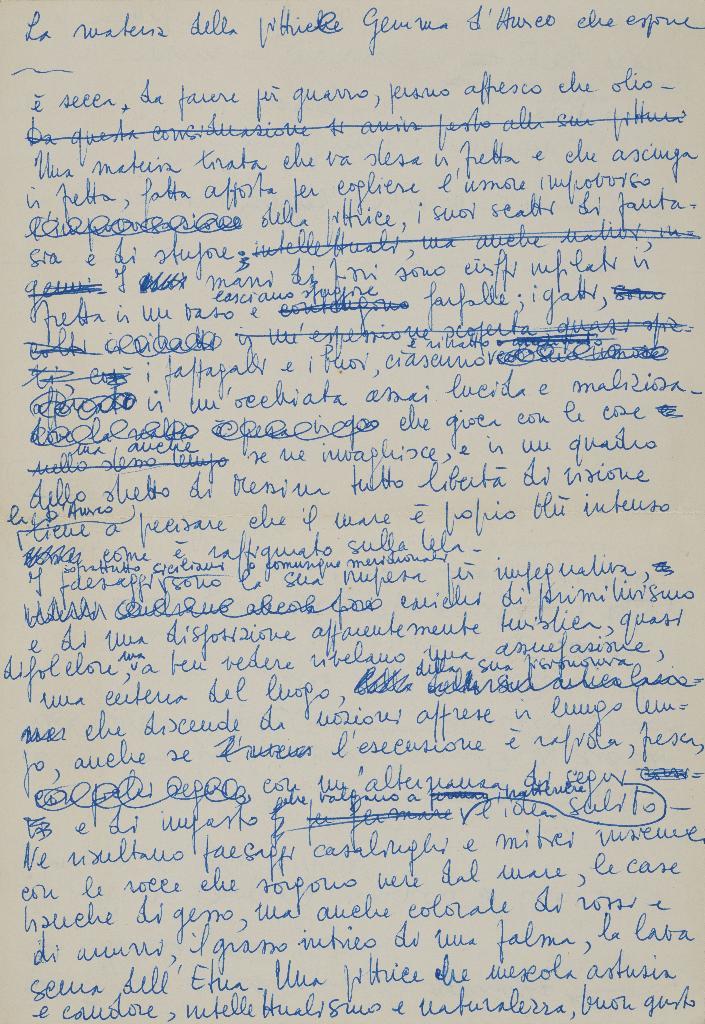 La materia della pittrice Gemma d'Amico che espone
è secca, da parere più guazzo, persino affresco che olio –
Da questa considerazione si arriva presto alla sua pittura
Una materia tirata che va stesa in fretta e che asciuga
in fretta, fatta apposta per cogliere l'umore improvviso
della pittrice, i suoi scatti di fanta-
sia e di stupore; intellettuali, ma anche nativi, in-
genui. I mazzi di fiori sono ciuffi infilati in
fretta in un vaso e lasciano sfuggire farfalle; i gatti,
in un'espressione scoperta quasi
i pappagalli e i buoi, ciascuno è ritratto
in un'occhiata assai lucida e maliziosa –
che gioca con le cose e
nello stesso tempo ma anche se ne invaghisce, e in un quadro
dello stretto di Messina tutto libertà di visione
la D'Amico tiene a precisare che il mare è proprio blù intenso
come è raffigurato sulla tela –
I paesaggi soprattutto siciliani o comunque meridionali sono la sua impresa più impegnativa,
carichi di primitivismo
e di una disposizione apparentemente turistica, quasi
di folclore, ma a ben vedere rivelano una assuefazione,
una certezza del luogo, della sua fisionomia
che discende da nozioni apprese in lungo tem-
po, anche se l'esecuzione è rapida, fresca,
con un'alternanza di segni
e di impasto che valgono a trattenere l'idea subito –
Ne risultano paesaggi casalinghi e mitici insieme
con le rocce che sorgono nere dal mare, le case
bianche di gesso, ma anche colorate di rossi e
di azzurri, il grasso intrico di una palma, la lava
scura dell'Etna. Una pittrice che mescola astuzia
e candore, intellettualismo e naturalezza, buon gusto